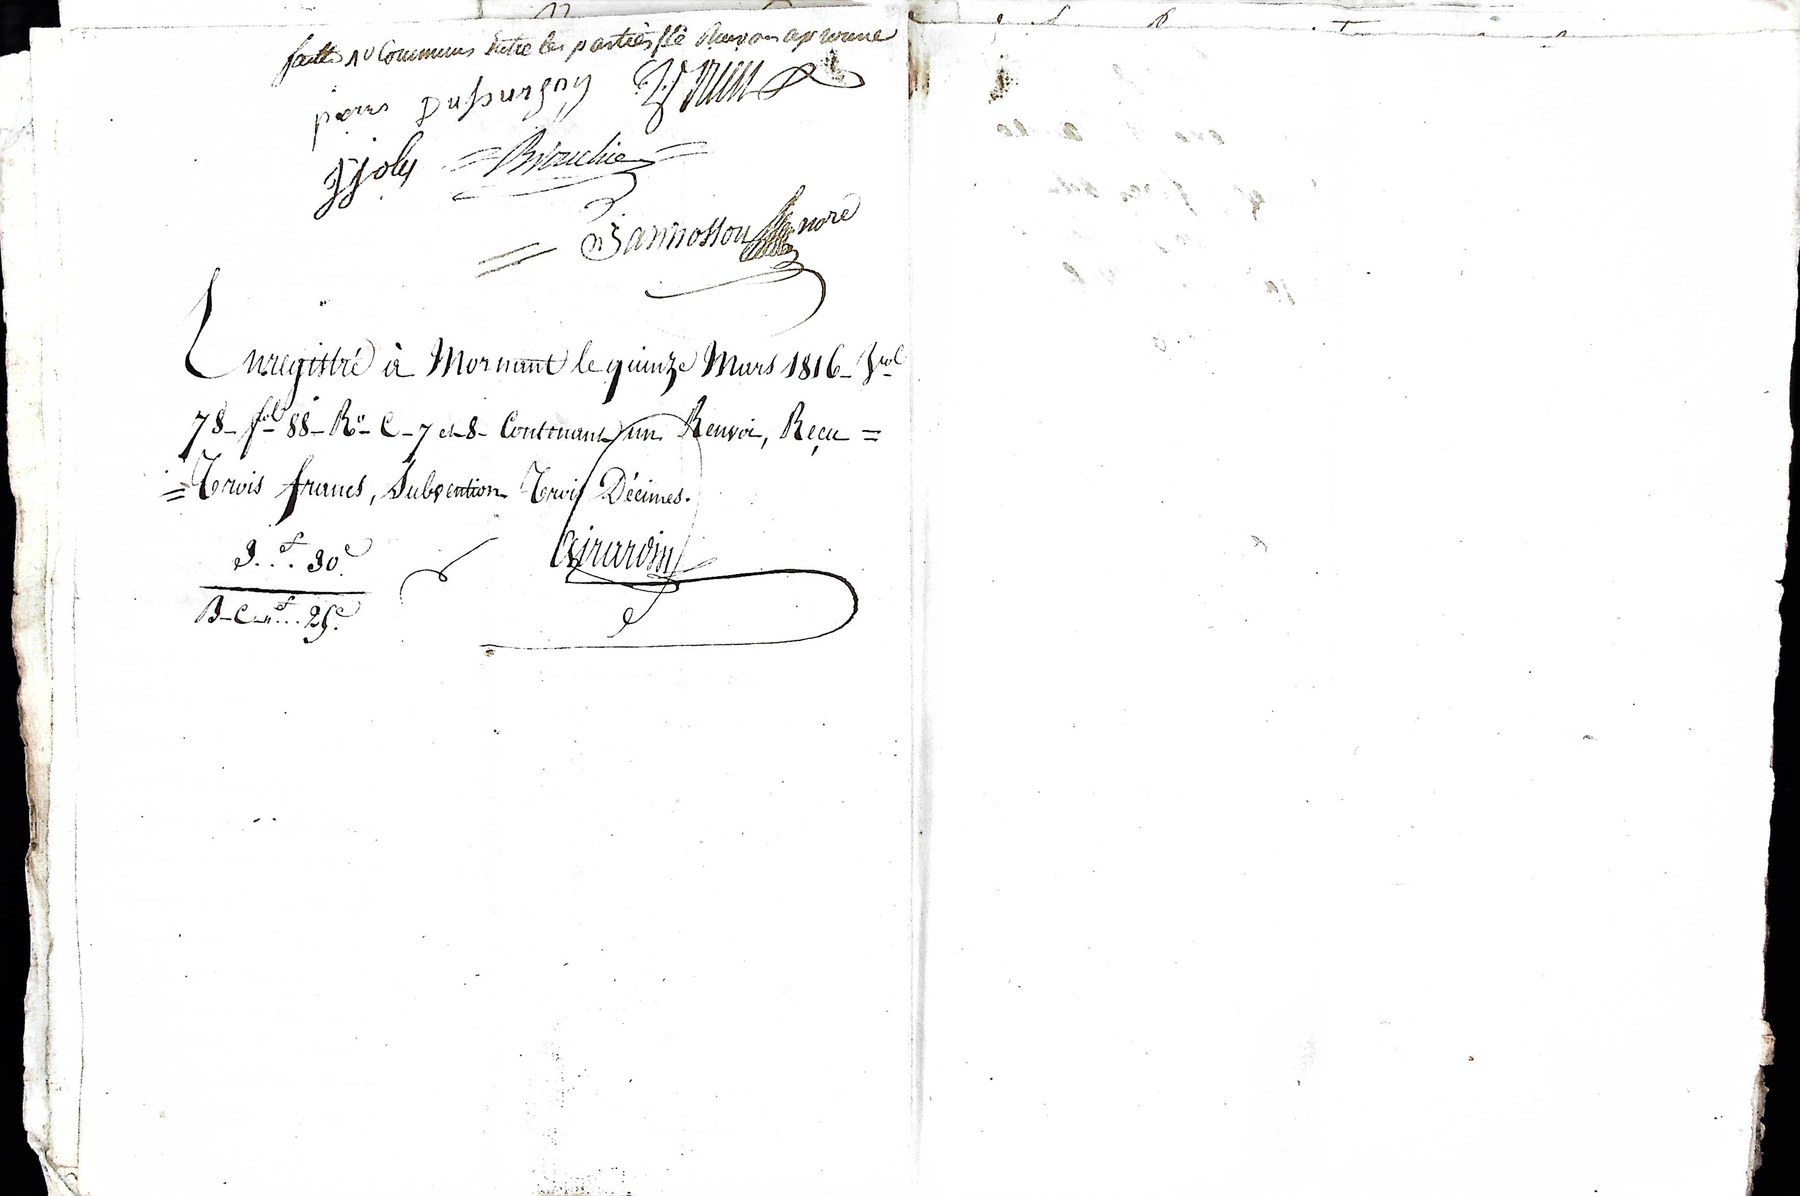 faitte au Commune Entre les parties sé Renvoi aprouvé
pierre Dupurgny
JJoly Bruchie
Jannosson nore
Enregistré à Mornant le quinze Mars 1816 - Vol
78 - fol 88 - Ro - C - 7 et 8 - Contenant un Renvoi, Reçu =
= Trois francs, Subvention Trois Décimes.
3.f. 30c.
Girardin
B - C - 1f.. 25c.